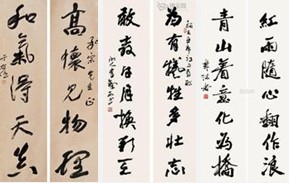 紅雨隨心翻作浪
青山着意化為橋
為有犧牲多壯志
敢教日月換新天
高懷見物理
和氣得天真
于右任